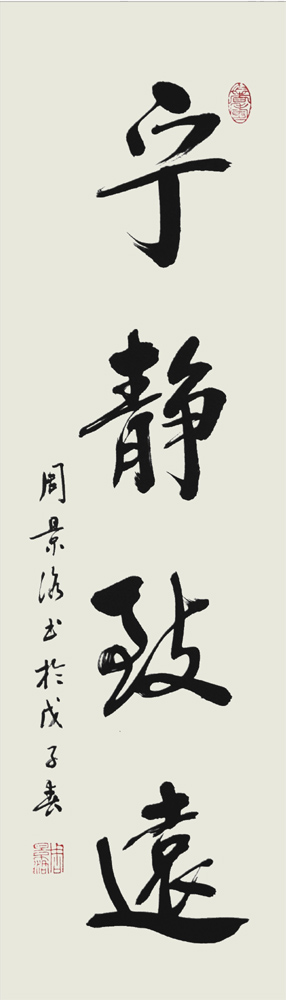 宁静致遠
周景洛书於戊子春